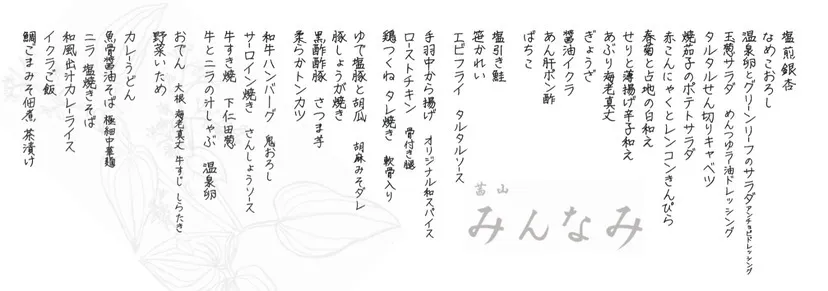 塩煎銀杏
なめこおろし
温泉卵とグリーンリーフのサラダ アンチョビドレッシング
玉葱サラダ めんつゆラー油ドレッシング
タルタルせん切りキャベツ
焼茄子のポテトサラダ
赤こんにゃくとレンコンきんぴら
春菊と占地の白和え
せりと薄揚げ辛子和え
あぶり海老真丈
ぎょうざ
醤油イクラ
あん肝ポン酢
ばちこ
塩引き鮭
笹かれい
エビフライ タルタルソース
手羽中から揚げ オリジナル和スパイス
ローストチキン 骨付き腿
鶏つくね タレ焼き 軟骨入り
ゆで塩豚と胡瓜 胡麻みそダレ
豚しょうが焼き
黒酢酢豚 さつま芋
柔らかトンカツ
和牛ハンバーグ 鬼おろし
サーロイン焼き さんしょうソース
牛すき焼 下仁田葱
牛とニラの汁しゃぶ 温泉卵
おでん 大根 海老真丈 牛すじ しらたき
野菜いため
カレーうどん
魚骨醤油そば 極細中華麺
ニラ 塩焼きそば
和風出汁カレーライス
イクラご飯
鯛ごまみそ佃煮 茶漬け
山
みんなみ